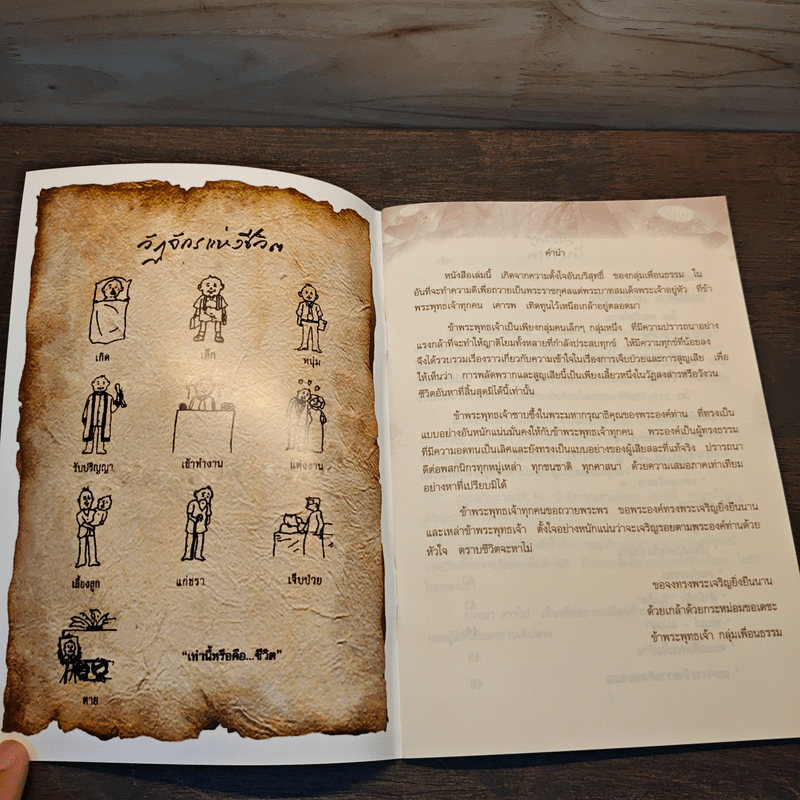 วัฏจักรแห่งชีวิต
เกิด
เด็ก
หนุ่ม
รับปริญญา
เข้าทำงาน
แต่งงาน
เลี้ยงลูก
แก่ชรา
เจ็บป่วย
ตาย
“เท่านี้หรือคือ...ชีวิต”
คำนำ
หนังสือเล่มนี้ เกิดจากความตั้งใจอันบริสุทธิ์ ของกลุ่มเพื่อนธรรม ใน
อันที่จะทำความดีเพื่อถวายเป็นพระราชกุศลแด่พระบาทสมเด็จพระเจ้าอยู่หัว ที่ข้า
พระพุทธเจ้าทุกคน เคารพ เทิดทูนไว้เหนือเกล้าอยู่ตลอดมา
ข้าพระพุทธเจ้าเป็นเพียงกลุ่มคนเล็กๆ กลุ่มหนึ่ง ที่มีความปรารถนาอย่าง
แรงกล้าที่จะทำให้ญาติโยมทั้งหลายที่กำลังประสบทุกข์ ให้มีความทุกข์ที่น้อยลง
จึงได้รวบรวมเรื่องราวเกี่ยวกับความเข้าใจในเรื่องการเจ็บป่วยและการสูญเสีย เพื่อ
ให้เห็นว่า การพลัดพรากและสูญเสียนี้เป็นเพียงเสี้ยวหนึ่งในวัฏสงสารหรือวังวน
ชีวิตอันหาที่สิ้นสุดมิได้นี้เท่านั้น
ข้าพระพุทธเจ้าซาบซึ้งในพระมหากรุณาธิคุณของพระองค์ท่าน ที่ทรงเป็น
แบบอย่างอันหนักแน่นมั่นคงให้กับข้าพระพุทธเจ้าทุกคน พระองค์เป็นผู้ทรงธรรม
ที่มีความอดทนเป็นเลิศและยังทรงเป็นแบบอย่างของผู้เสียสละที่แท้จริง ปรารถนา
ดีต่อพสกนิกรทุกหมู่เหล่า ทุกชนชาติ ทุกศาสนา ด้วยความเสมอภาคเท่าเทียม
อย่างหาที่เปรียบมิได้
ข้าพระพุทธเจ้าทุกคนขอถวายพระพร ขอพระองค์ทรงพระเจริญยิ่งยืนนาน
และเหล่าข้าพระพุทธเจ้า ตั้งใจอย่างหนักแน่นว่าจะเจริญรอยตามพระองค์ท่านด้วย
หัวใจ ตราบชีวิตจะหาไม่
ขอจงทรงพระเจริญยิ่งยืนนาน
ด้วยเกล้าด้วยกระหม่อมขอเดชะ
ข้าพระพุทธเจ้า กลุ่มเพื่อนธรรม